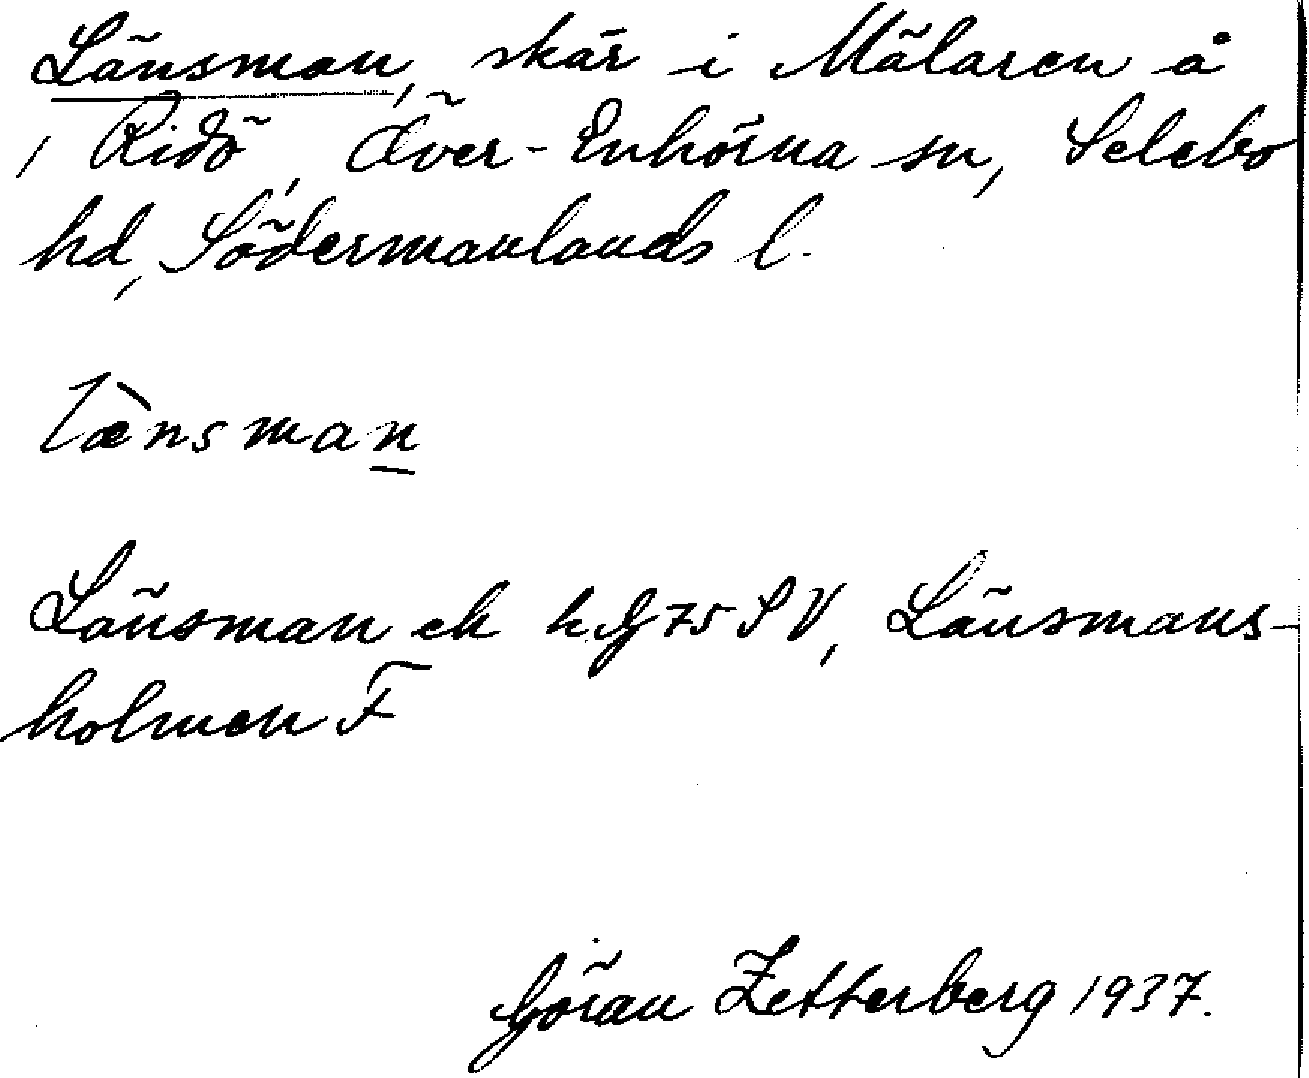 Länsman, skär i Mälaren å
/ Ridö, Över-Enhörna sn, Selebo
hd, Södermanlands l.
Læ̀nsman
Länsman ek h.G 75 SV, Länsmans-
holmen F
Göran Zetterberg 1937.